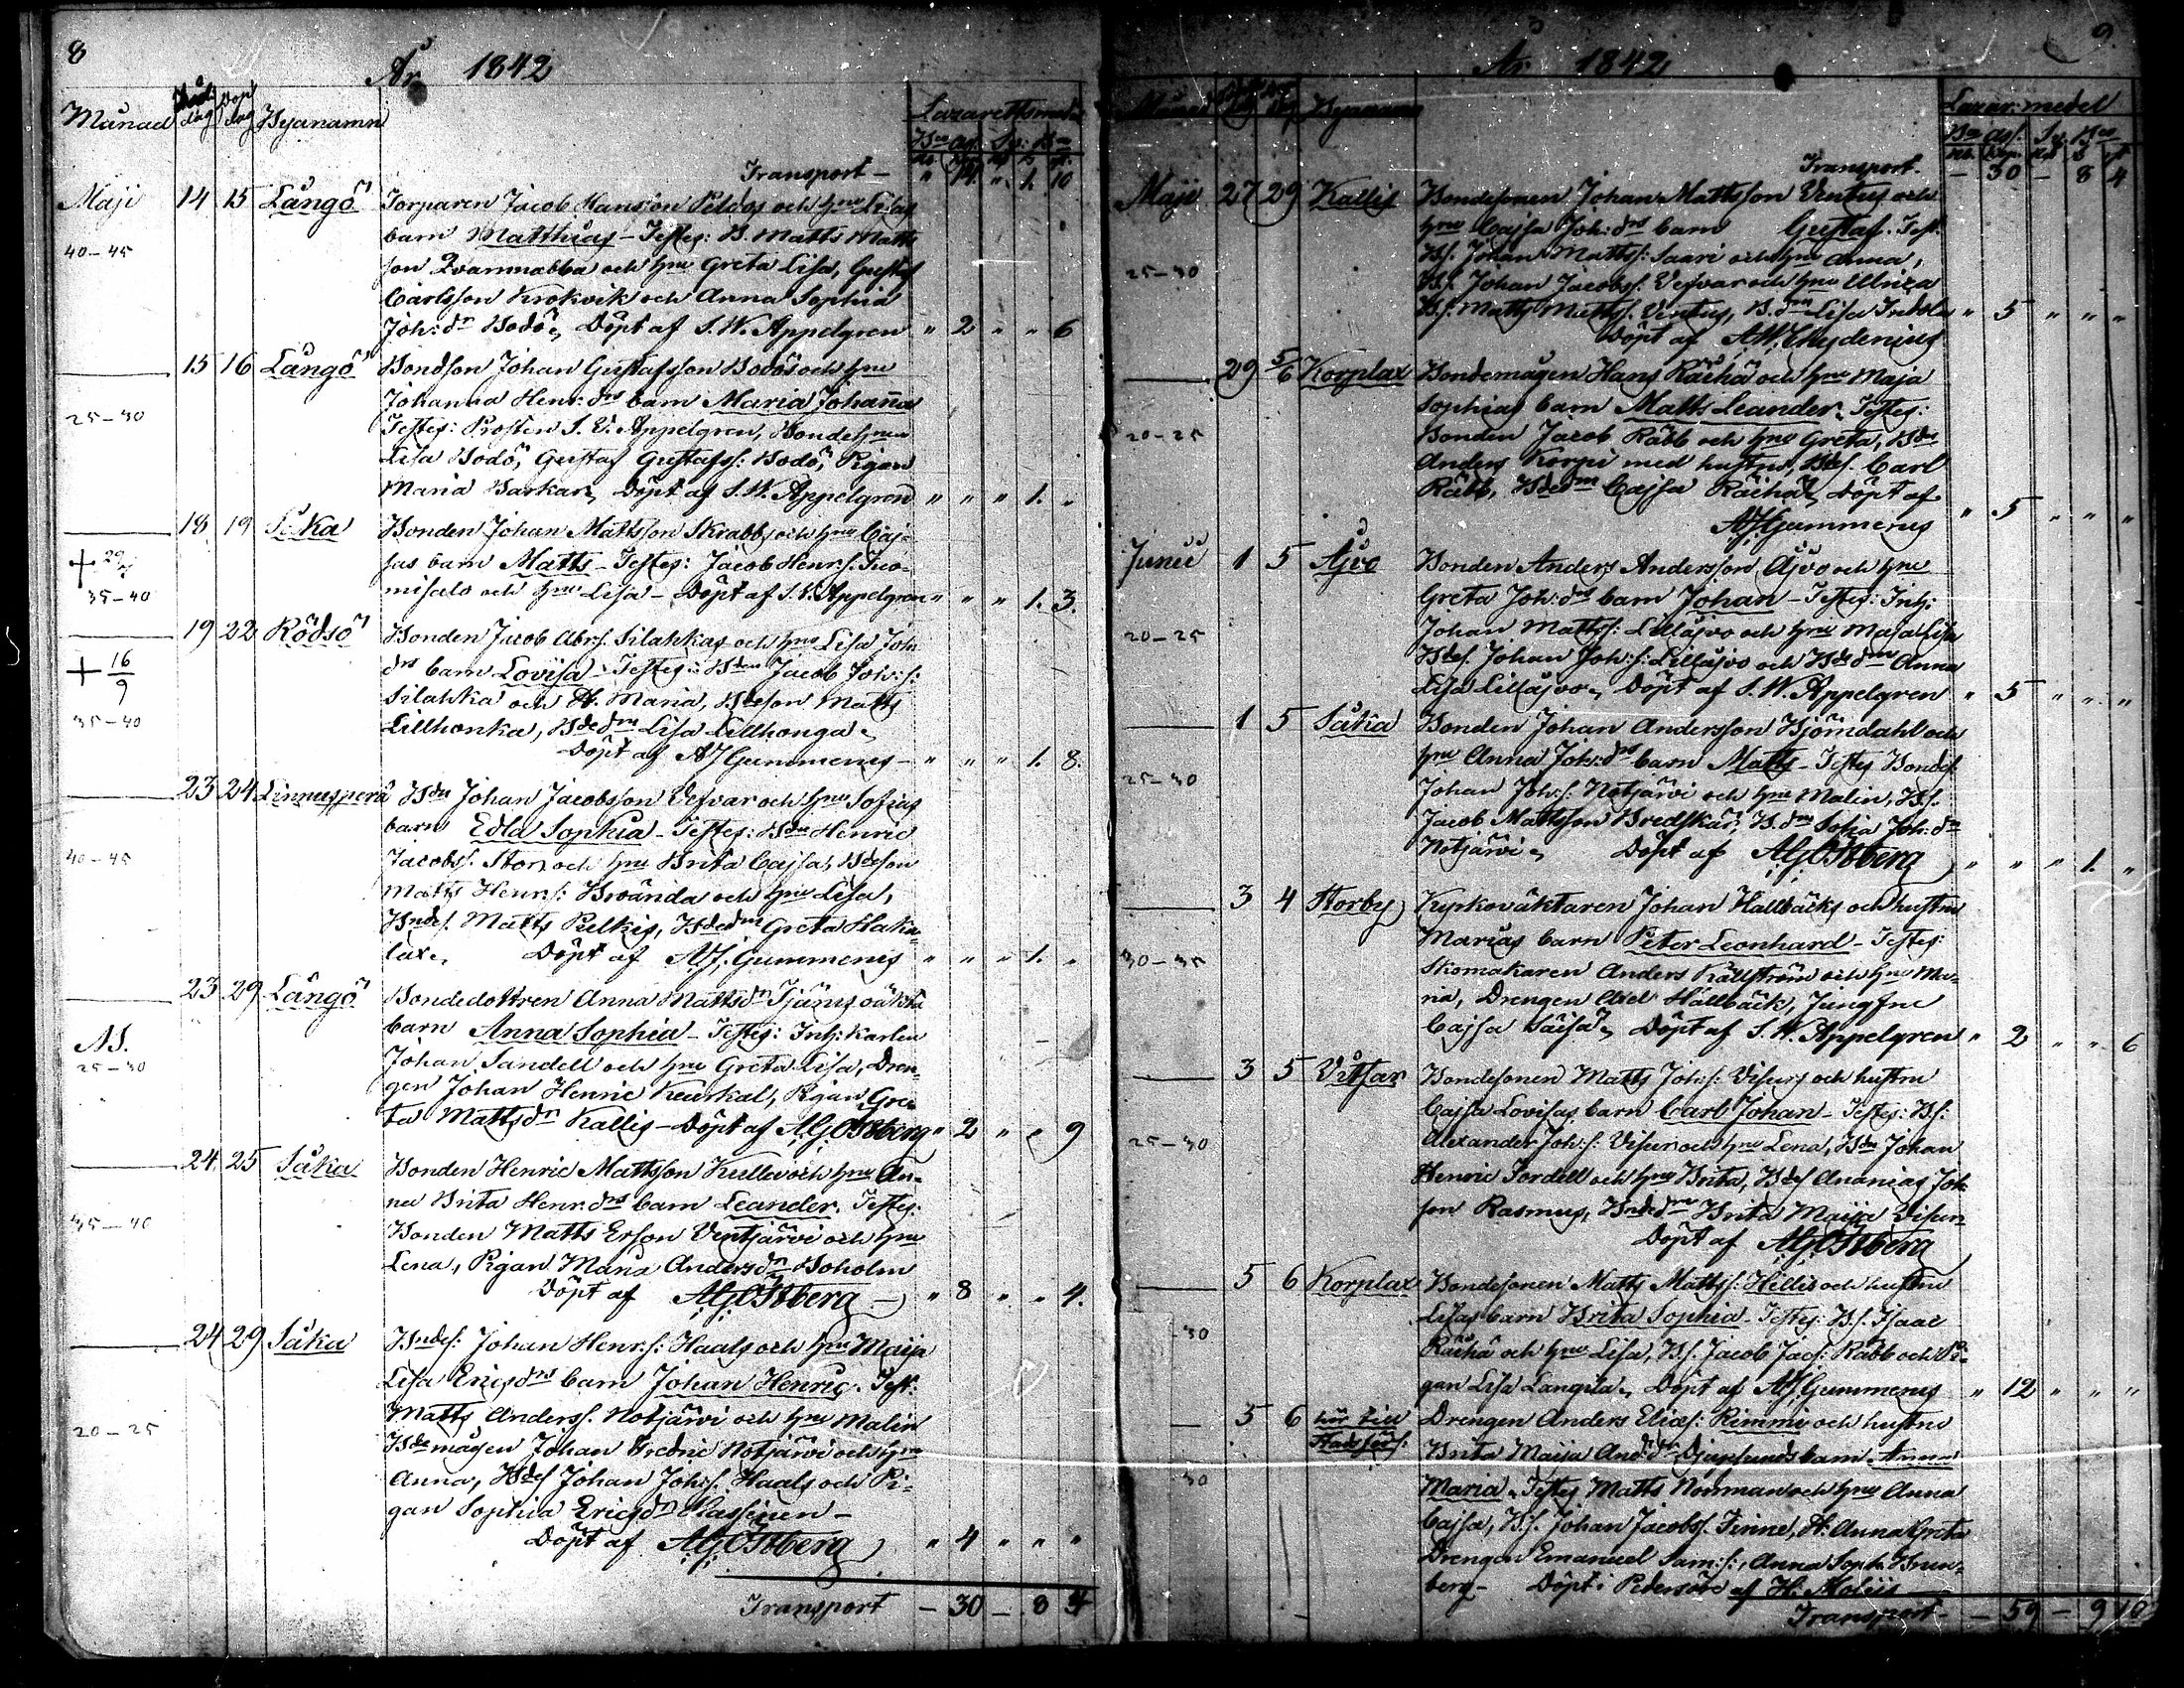 8
År 1842
Månad Född dag Döp dag Byanamn Lazarettsmed.
Bco ass. Sp: Bco
Transport — " 14 " 1. 10
Maji 14 15 Långö Torparen Jacob Hansson Peldos och hru Lisas
barn Matthias - Testes: B. Matts Matts
40-45
son Qvarnnabba och hru Greta Lisa, Gustaf
Carlsson Krokvik och Anna Sophia
Joh:dr Bodö, Döpt af S. W. Appelgren " 2 " " 6
15 16 Långö Bondson Johan Gustafsson Bodös och hru
Johanna Henr:drs barn Maria Johanna
25-30
Testes: Prosten S. V. Appelgren, Bondehrun
Lisa Bodö, Gustaf Gustafss: Bodö, Pigan
Maria Barkar, Döpt af S. W. Appelgren " " " 1. "
18 19 Såka Bonden Johan Mattsson Skrabbs och hru Caj-
+ 29/
sas barn Matts - Testes: Jacob Henr:s.
35-40
misalo och hru Lisa - Döpt af S. W. Appelgren " " " 1. 3.
19 22 Rödsö Bonden Jacob Abrs. Silahkas och hru Lisa Joh.
+ 16/9
drs barn Lovisa - Testes: Bden Jacob Joh:s:
Silahka och H. Maria, Bdeson Matts
35-40
Lillhonka, Bdedrn Lisa Lillhonga,
Döpt af AJGummerus - " " " 1. 8.
23 24 Linnusperä Bdn Johan Jacobsson Vefvar och hru Sofias
barn Edla Sophia - Testes: Bdn Henric
40-45
Jacobss. Stor och hru Brita Cajsa, Bdeson
Matts Henr:s: Broända och hru Lisa,
Bndes. Matts Pelkis, Bdedrn Greta Haka-
lax, Döpt af AJ. Gummerus " " " 1. "
23 29 Långö Bondedottren Anna Mattsdr Tjärus oäkta
barn Anna Sophia - Testes: Inh: Karlen
25-30
Johan Sandell och hru Greta Lisa, Dren-
gen Johan Henric Keurkal, Pigan Gre-
ta Mattsdr Kallis - Döpt af AGÖstberg " 2 " " 9
24 25 Såka Bonden Henric Mattsson Kulles och hru An-
na Brita Henr:drs barn Leander. Testes:
35-40
Bonden Matts Erson Ventjärvi och hru
Lena, Pigan Maria Andersdr Boholm
Döpt af AGÖstberg - " 8 " " 4.
24 29 Såka Bndes: Johan Henr:s: Haals och hru Maija
Lisa Ericsdrs barn Johan Henric. Test:
20-25
Matts Anderss. Notjärvi och hru Malin
Bdemågen Johan Fredric Notjärvi och hru
Anna, Bdes Johan Joh:s. Haals och Pi-
gan Sophia Ericsdr Hassinen -
Döpt af AGÖstberg " 4 " " "
Transport - 30 - 8 4
9
År 1842
Månad dag dag Byanamn Lazar: medel
Bco ass. Sp. Bco
Transport. - 30 - 8 4
Maji 27 29 Kallis Bondesonen Johan Mattsson Ventus och
hru Cajsa Joh:drs barn Gustaf. Test.
25-30
Bs. Johan Mattss: Saari och hru Anna,
Bs. Johan Jacobss: Vefvar och hru Ulrica
Bs. Matts Mattss. Ventus, B.drn Lisa Indola " 5 " " "
Döpt af AWChydenius
29 5/6 Korplax Bondemågen Hans Räihä och hru Maja
Sophias barn Matts Leander. Testes:
20-25
Bonden Jacob Räbb och hru Greta, Bdn
Anders Korpi med hustru, Bdes. Carl
Räbb, Bdedrn Cajsa Räihä, Döpt af
AJGummerus " 5 " " "
Junii 1 5 Åjvo Bonden Anders Andersson Åjvo och hru
Greta Joh:drs barn Johan - Testes: Inh:
20-25
Johan Mattss: Lillåjvo och hru Maja Lisa
Bdes. Johan Joh:s: Lillåjvo och Bdedrn Anna
Lisa Lillåjvo, Döpt af S. W. Appelgren " 5 " " "
1 5 Såka Bonden Johan Andersson Björndahl och
hru Anna Joh:drs barn Matts - Testes Bondes.
25-30
Johan Joh:s: Notjärvi och hru Malin, Bs.
Jacob Mattsson Bredskär, B.drn Sofia Joh:dr
Notjärvi, Döpt af AGÖstberg " " " 1. "
3 4 Storby Kyrkoväktaren Johan Hällbäcks och hustru
Marias barn Peter Leonhard - Testes:
30-35
Skomakaren Anders Källström och hru Ma-
ria, Drengen Abel Hällbäck, Jungfru
Cajsa Säisä, Döpt af S. W. Appelgren " 2 " " 6
3 5 Vitsar Bondesonen Matts Joh:s: Visurs och hustru
Cajsa Lovisas barn Carl Johan - Testes: Bs:
25-30
Alexander Joh:s: Visur och hru Lena, Bdn Johan
Henric Sordell och hru Brita, Bdes Ananias Joh
son Rasmus, Bndedrn Brita Maija Visur
Döpt af AGÖstberg
5 6 Korplax Bondesonen Matts Mattss: Hillis och hustru
Lisas barn Brita Sophia - Testes: Bs. Isaac
-30
Räihä och hru Lisa, Bs. Jacob Jacs: Rabb och Pi-
gan Lisa Langila, Döpt af AJGummerus " 12 " " "
5 6 hör till Stadsförs. Drengen Anders Elias: Rimmi och hustru
Brita Maija And:dr Djupsunds barn Anna
30
Maria, Testes Matts Norrman och hru Anna
Cajsa, Bs. Johan Jacobss. Finne, H: Anna Greta
Drengen Emanuel Sam:s:, Anna Soph. Brun-
berg - Döpt i Pedersöre af H: Moliis
Transport - 59 - 9 10